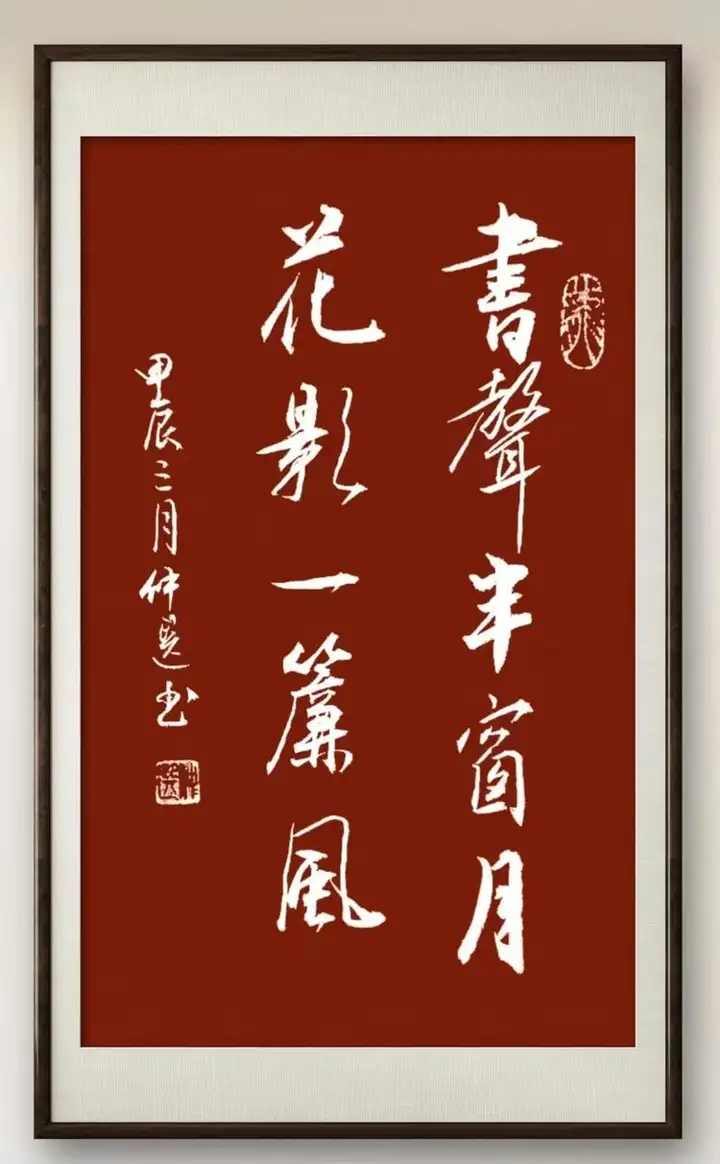 書聲半窗月
花影一簾風
甲辰三月仲
书